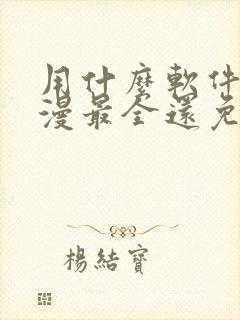 用什麼軟件
漫最全還免
楊結寶